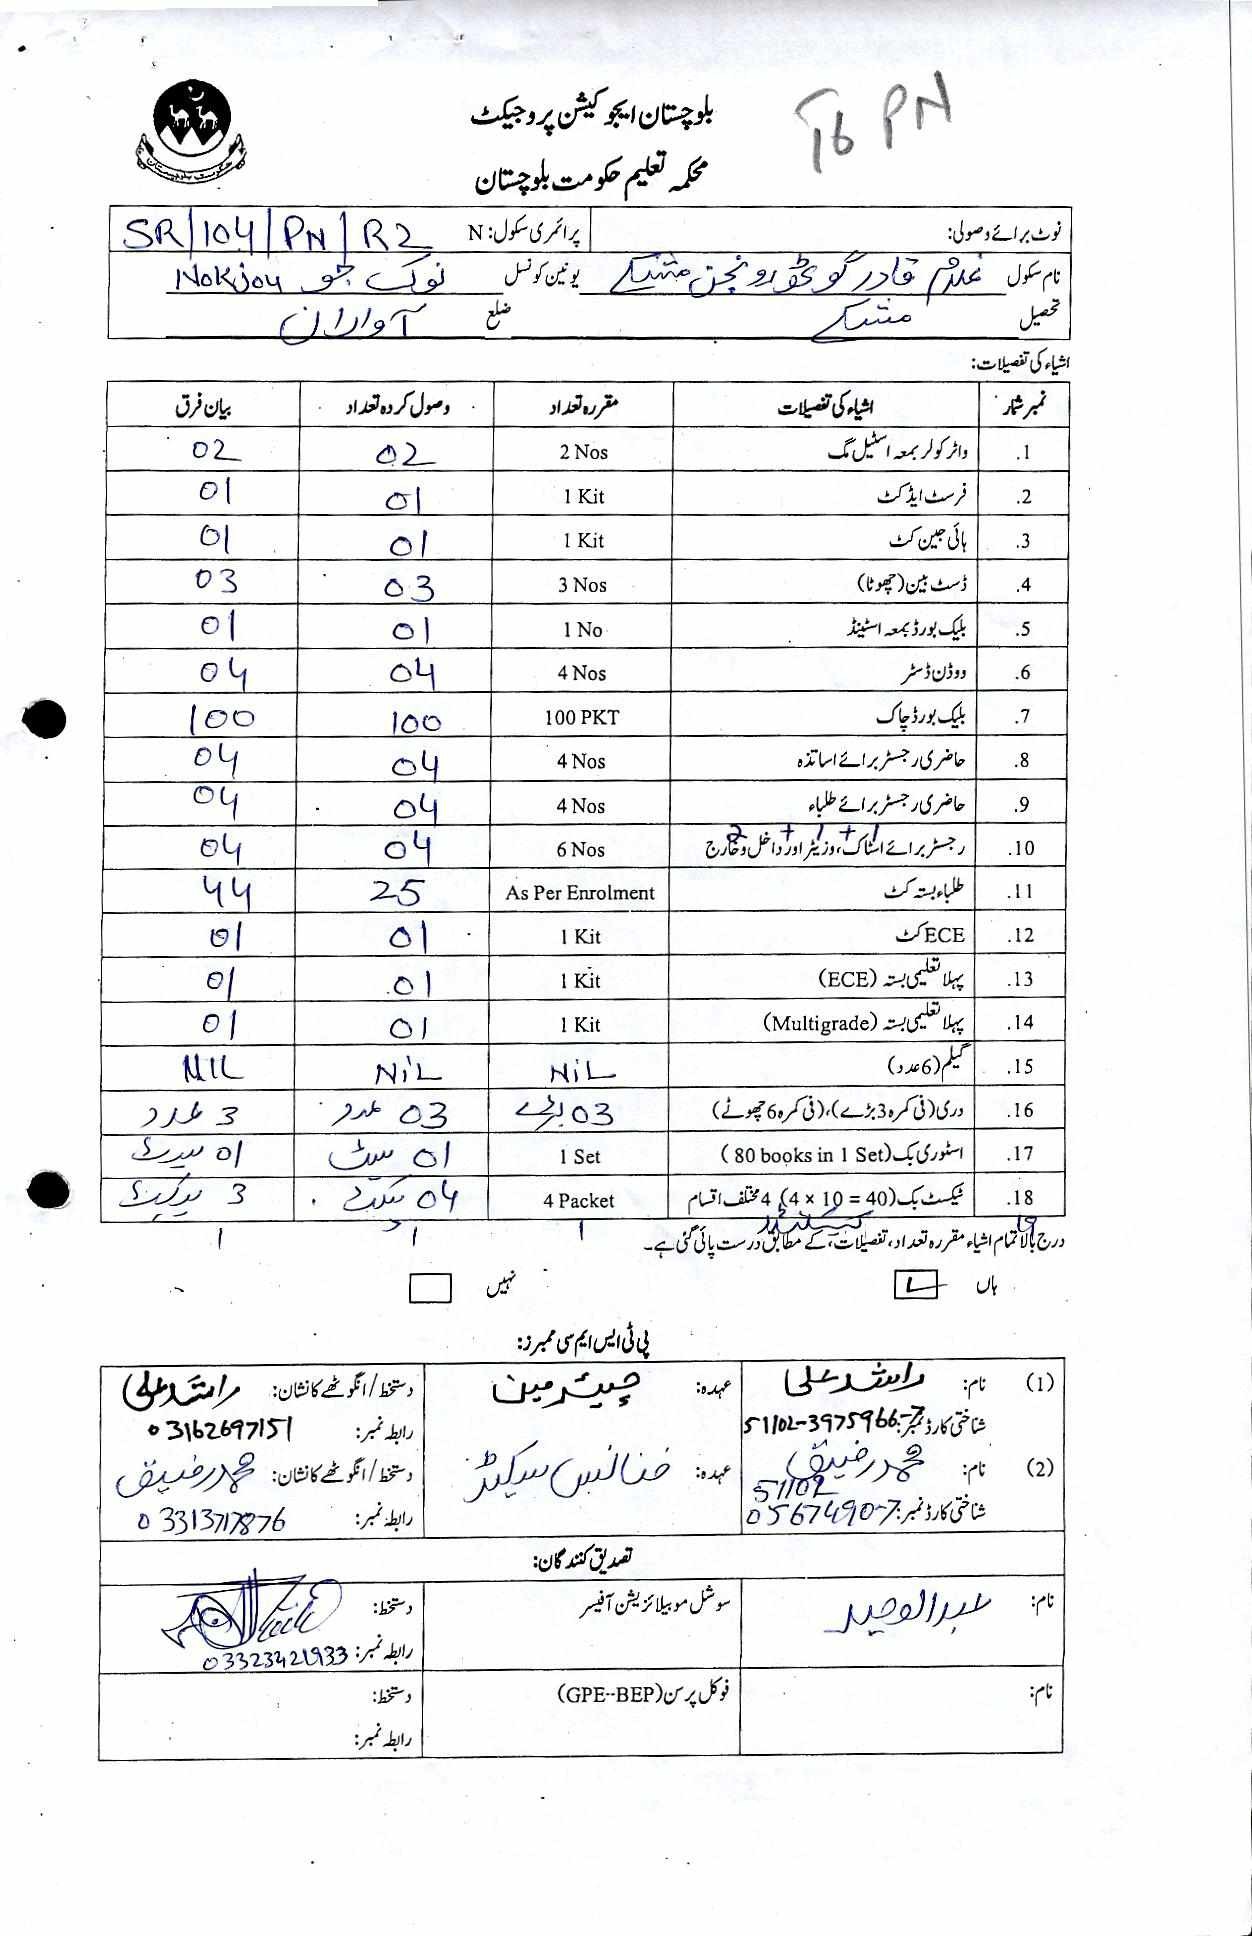 بلوچستان ایجوکیشن پروجیکٹ
16 PN
محکمہ تعلیم حکومت بلوچستان
حکومت بلوچستان
نوٹ برائے وصولی: پرائمری سکول: N SR/104/PN/R2
نام سکول غلام قادر گوٹھ رونجن مشکے یونین کونسل نوک جو Nokjou
تحصیل مشکے ضلع آواران
اشیاء کی تفصیلات:
نمبر شمار اشیاء کی تفصیلات مقررہ تعداد وصول کردہ تعداد بیان فرق
.1 واٹر کولر بمعہ اسٹیل مگ 2 Nos 02 02
.2 فرسٹ ایڈ کٹ 1 Kit 01 01
.3 ہائی جین کٹ 1 Kit 01 01
.4 ڈسٹ بین (چھوٹا) 3 Nos 03 03
.5 بلیک بورڈ بمعہ اسٹینڈ 1 No 01 01
.6 ووڈن ڈسٹر 4 Nos 04 04
.7 بلیک بورڈ چاک 100 PKT 100 100
.8 حاضری رجسٹر برائے اساتذہ 4 Nos 04 04
.9 حاضری رجسٹر برائے طلباء 4 Nos 04 04
1 + 1 + 2
.10 رجسٹر برائے اسٹاک، وزیٹر اور داخل و خارج 6 Nos 04 04
.11 طلباء بستہ کٹ As Per Enrolment 25 44
.12 ECE کٹ 1 Kit 01 01
.13 پہلا تعلیمی بستہ (ECE) 1 Kit 01 01
.14 پہلا تعلیمی بستہ (Multigrade) 1 Kit 01 01
.15 گیلم (6 عدد) NiL NiL NIL
.16 دری (فی کمرہ 3 بڑے)، (فی کمرہ 6 چھوٹے) 03 بڑے 03 عدد 3 عدد
.17 اسٹوری بک (80 books in 1 Set) 1 Set 01 سیٹ 01 سیٹ
.18 ٹیکسٹ بک (4 x 10 = 40) 4 مختلف اقسام 4 Packet 04 پیکٹ 3 پیکٹ
19 1 1 1
درج بالا تمام اشیاء مقررہ تعداد، تفصیلات، کے مطابق درست پائی گئی ہے۔
ہاں نہیں
پی ٹی ایس ایم سی ممبرز:
(1) نام: راشد علی عہدہ: چیئرمین دستخط/انگوٹھے کا نشان: راشد علی
شناختی کارڈ نمبر: 51102-3975966-7 رابطہ نمبر: 03162697151
(2) نام: محمد رفیق عہدہ: فنانس سیکٹر دستخط/انگوٹھے کا نشان: محمد رفیق
51102
شناختی کارڈ نمبر: 0567490-7 رابطہ نمبر: 03313717876
تصدیق کنندگان:
نام: عبدالوحید سوشل موبیلائزیشن آفیسر دستخط:
رابطہ نمبر: 03323421933
نام: فوکل پرسن (GPE--BEP) دستخط:
رابطہ نمبر: